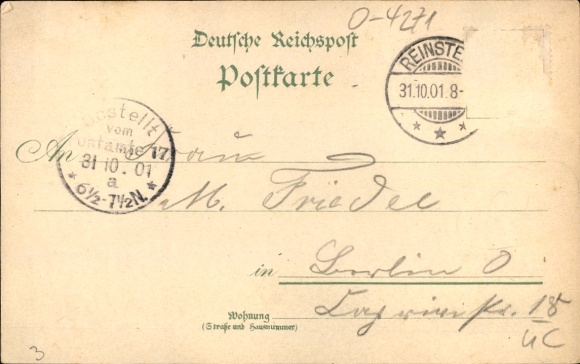 O-4271
Deutsche Reichspost
Postkarte
REINSTE
31.10.01.8-
Bestellt
vom
Postamte 17
31 10. 01
a
6½-7½N.
An Frau
M. Friedel
in Berlin O
Wohnung
(Straße und Hausnummer)
str. 18
3